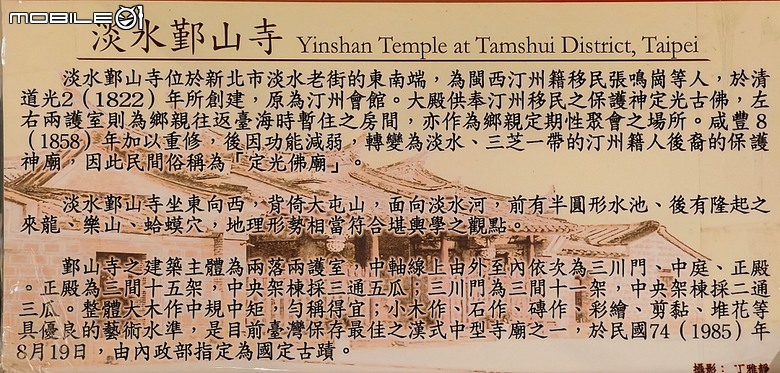 MOBILE01
淡水鄞山寺 Yinshan Temple at Tamshui District, Taipei
淡水鄞山寺位於新北市淡水老街的東南端，為閩西汀州籍移民張鳴崗等人，於清
道光2（1822）年所創建，原為汀州會館。大殿供奉汀州移民之保護神定光古佛，左
右兩護室則為鄉親往返臺海時暫住之房間，亦作為鄉親定期性聚會之場所。咸豐8
（1858）年加以重修，後因功能減弱，轉變為淡水、三芝一帶的汀州籍人後裔的保護
神廟，因此民間俗稱為「定光佛廟」。
淡水鄞山寺坐東向西，背倚大屯山，面向淡水河，前有半圓形水池、後有隆起之
來龍、樂山、蛤蟆穴，地理形勢相當符合堪輿學之觀點。
鄞山寺之建築主體為兩落兩護室，中軸線上由外至內依次為三川門、中庭、正殿
。正殿為三間十五架，中央架棟採三通五瓜；三川門為三間十一架，中央架棟採二通
三瓜。整體大木作中規中矩，勻稱得宜；小木作、石作、磚作、彩繪、剪黏、堆花等
具優良的藝術水準，是目前臺灣保存最佳之漢式中型寺廟之一，於民國74（1985）年
8月19日，由內政部指定為國定古蹟。
攝影：丁雅靜